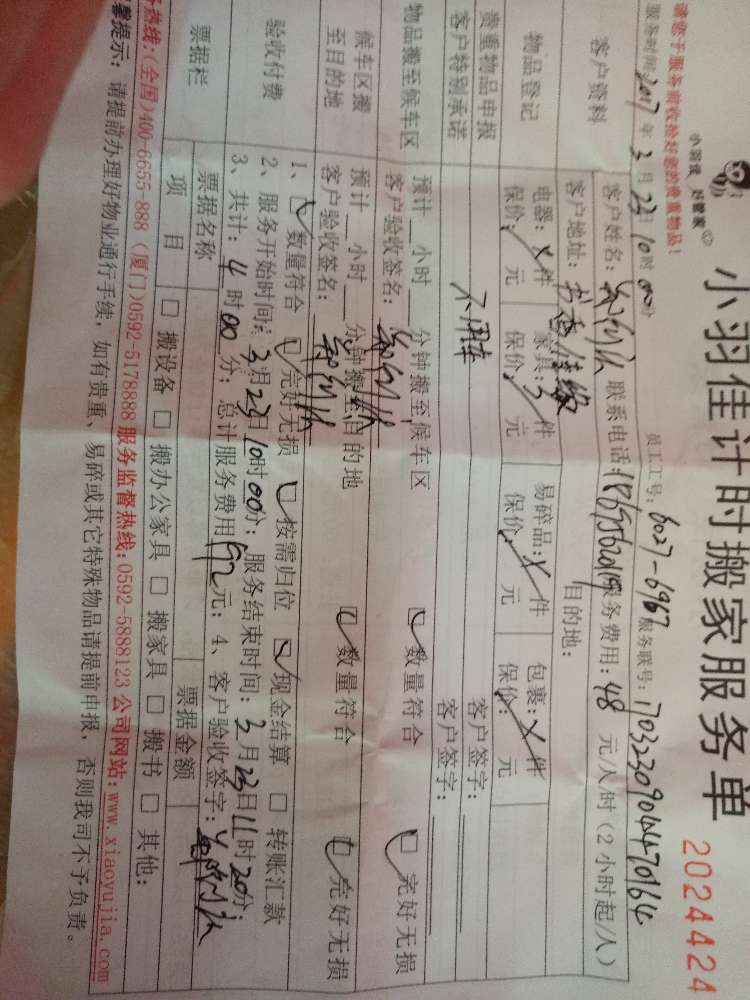 小羽佳计时搬家服务单
2024424
小羽佳 好管家
请您于服务前收拾好您的贵重物品!
员工工号: 6027-6967 服务联号: 17032309044470164
服务时间: 2017年3月23日10时00分
客户资料
客户姓名: 联系电话: 服务费用: 48 元/人/时(2小时起/人)
客户地址: 书香佳缘 目的地:
物品登记
电器: ✓件 家具: 5件 易碎品: ✓件 包裹: ✓件
保价: 元 保价: 元 保价: 元 保价: 元
贵重物品申报 客户签字:
客户特别承诺 不用车 客户签字:
物品搬至候车区
预计 小时 分钟搬至候车区 数量符合 完好无损
客户验收签名:
候车区搬至目的地
预计 小时 分钟搬至目的地 数量符合 完好无损
客户验收签名:
验收付费
1、 数量符合 完好无损 按需归位 现金结算 转账汇款
2、服务开始时间: 3月23日10时00分; 服务结束时间: 3月23日11时20分;
3、共计: 4时00分; 总计服务费用192元; 4、客户验收签字:
票据栏
票据名称 票据金额
项目 搬设备 搬办公家具 搬家具 搬书 其他:
热线:(全国)400-6655-888 (厦门)0592-5178888 服务监督热线:0592-5888123 公司网站:www.xiaoyujia.com
馨提示: 请提前办理好物业通行手续, 如有贵重、易碎或其它特殊物品请提前申报, 否则我司不予负责。